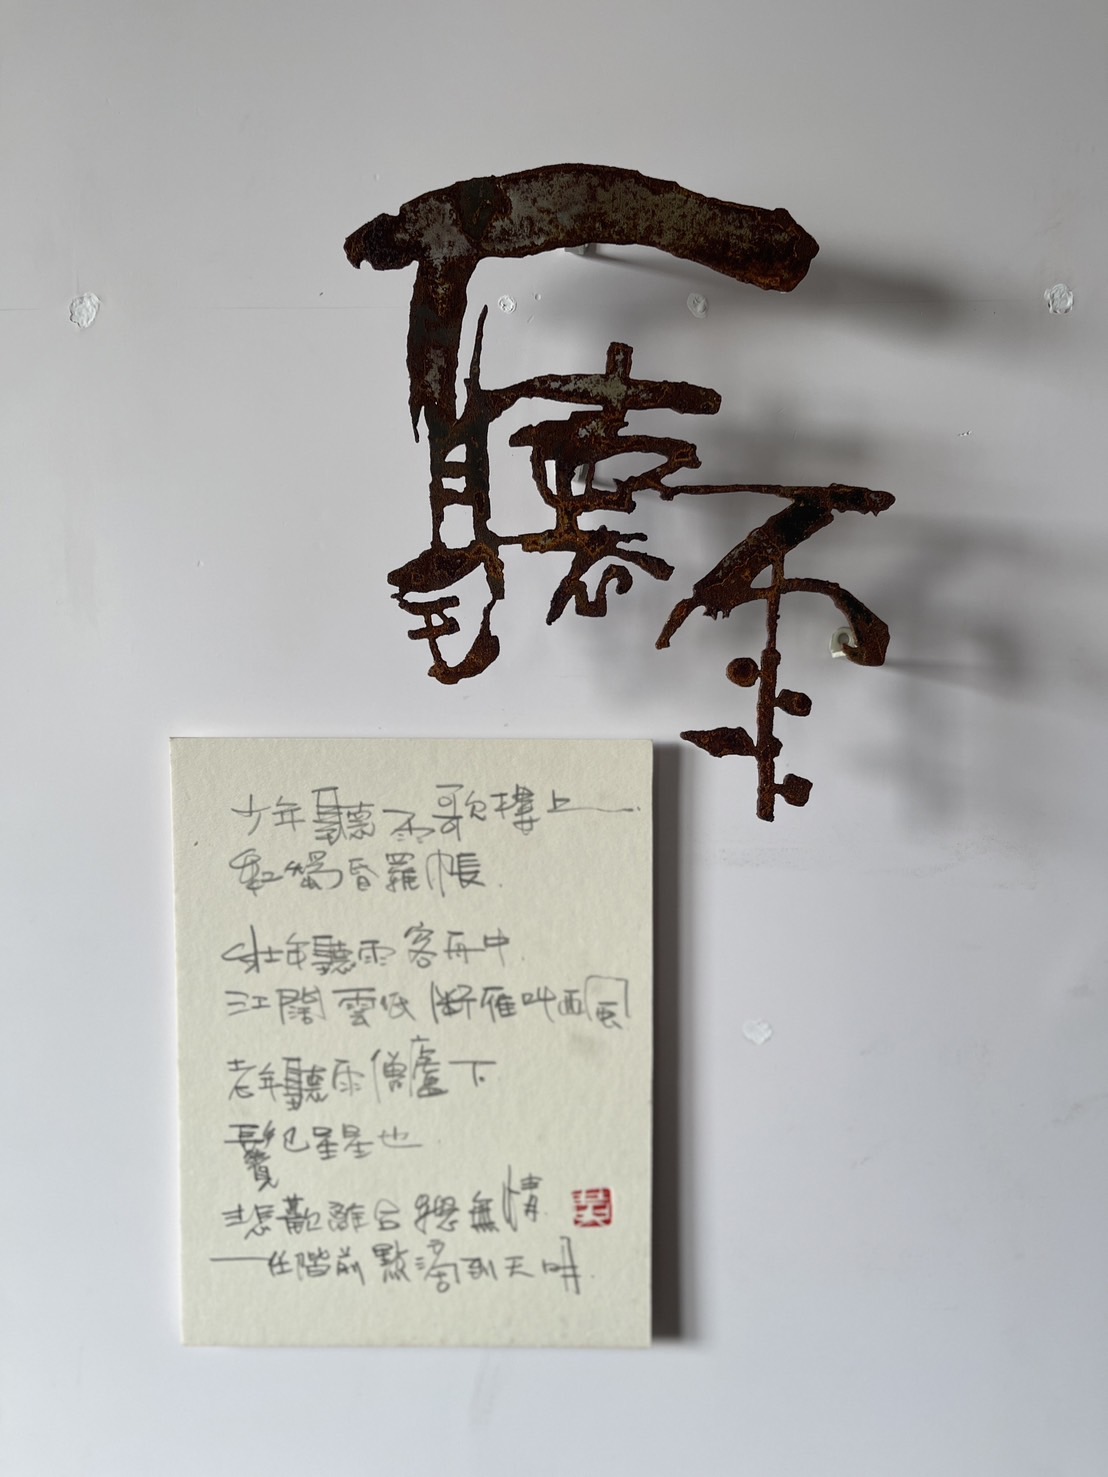 聽雨
少年聽雨歌樓上
紅燭昏羅帳
壯年聽雨客舟中
江闊雲低斷雁叫西風
老年聽雨僧廬下
鬢已星星也
悲歡離合總無情
一任階前點滴到天明